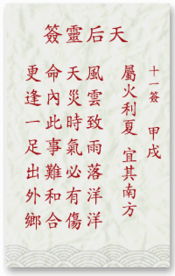 天后靈簽
十一簽 甲戌
屬火利夏 宜其南方
風雲致雨落洋洋
天災時氣必有傷
命內此事難和合
更逢一足出外鄉